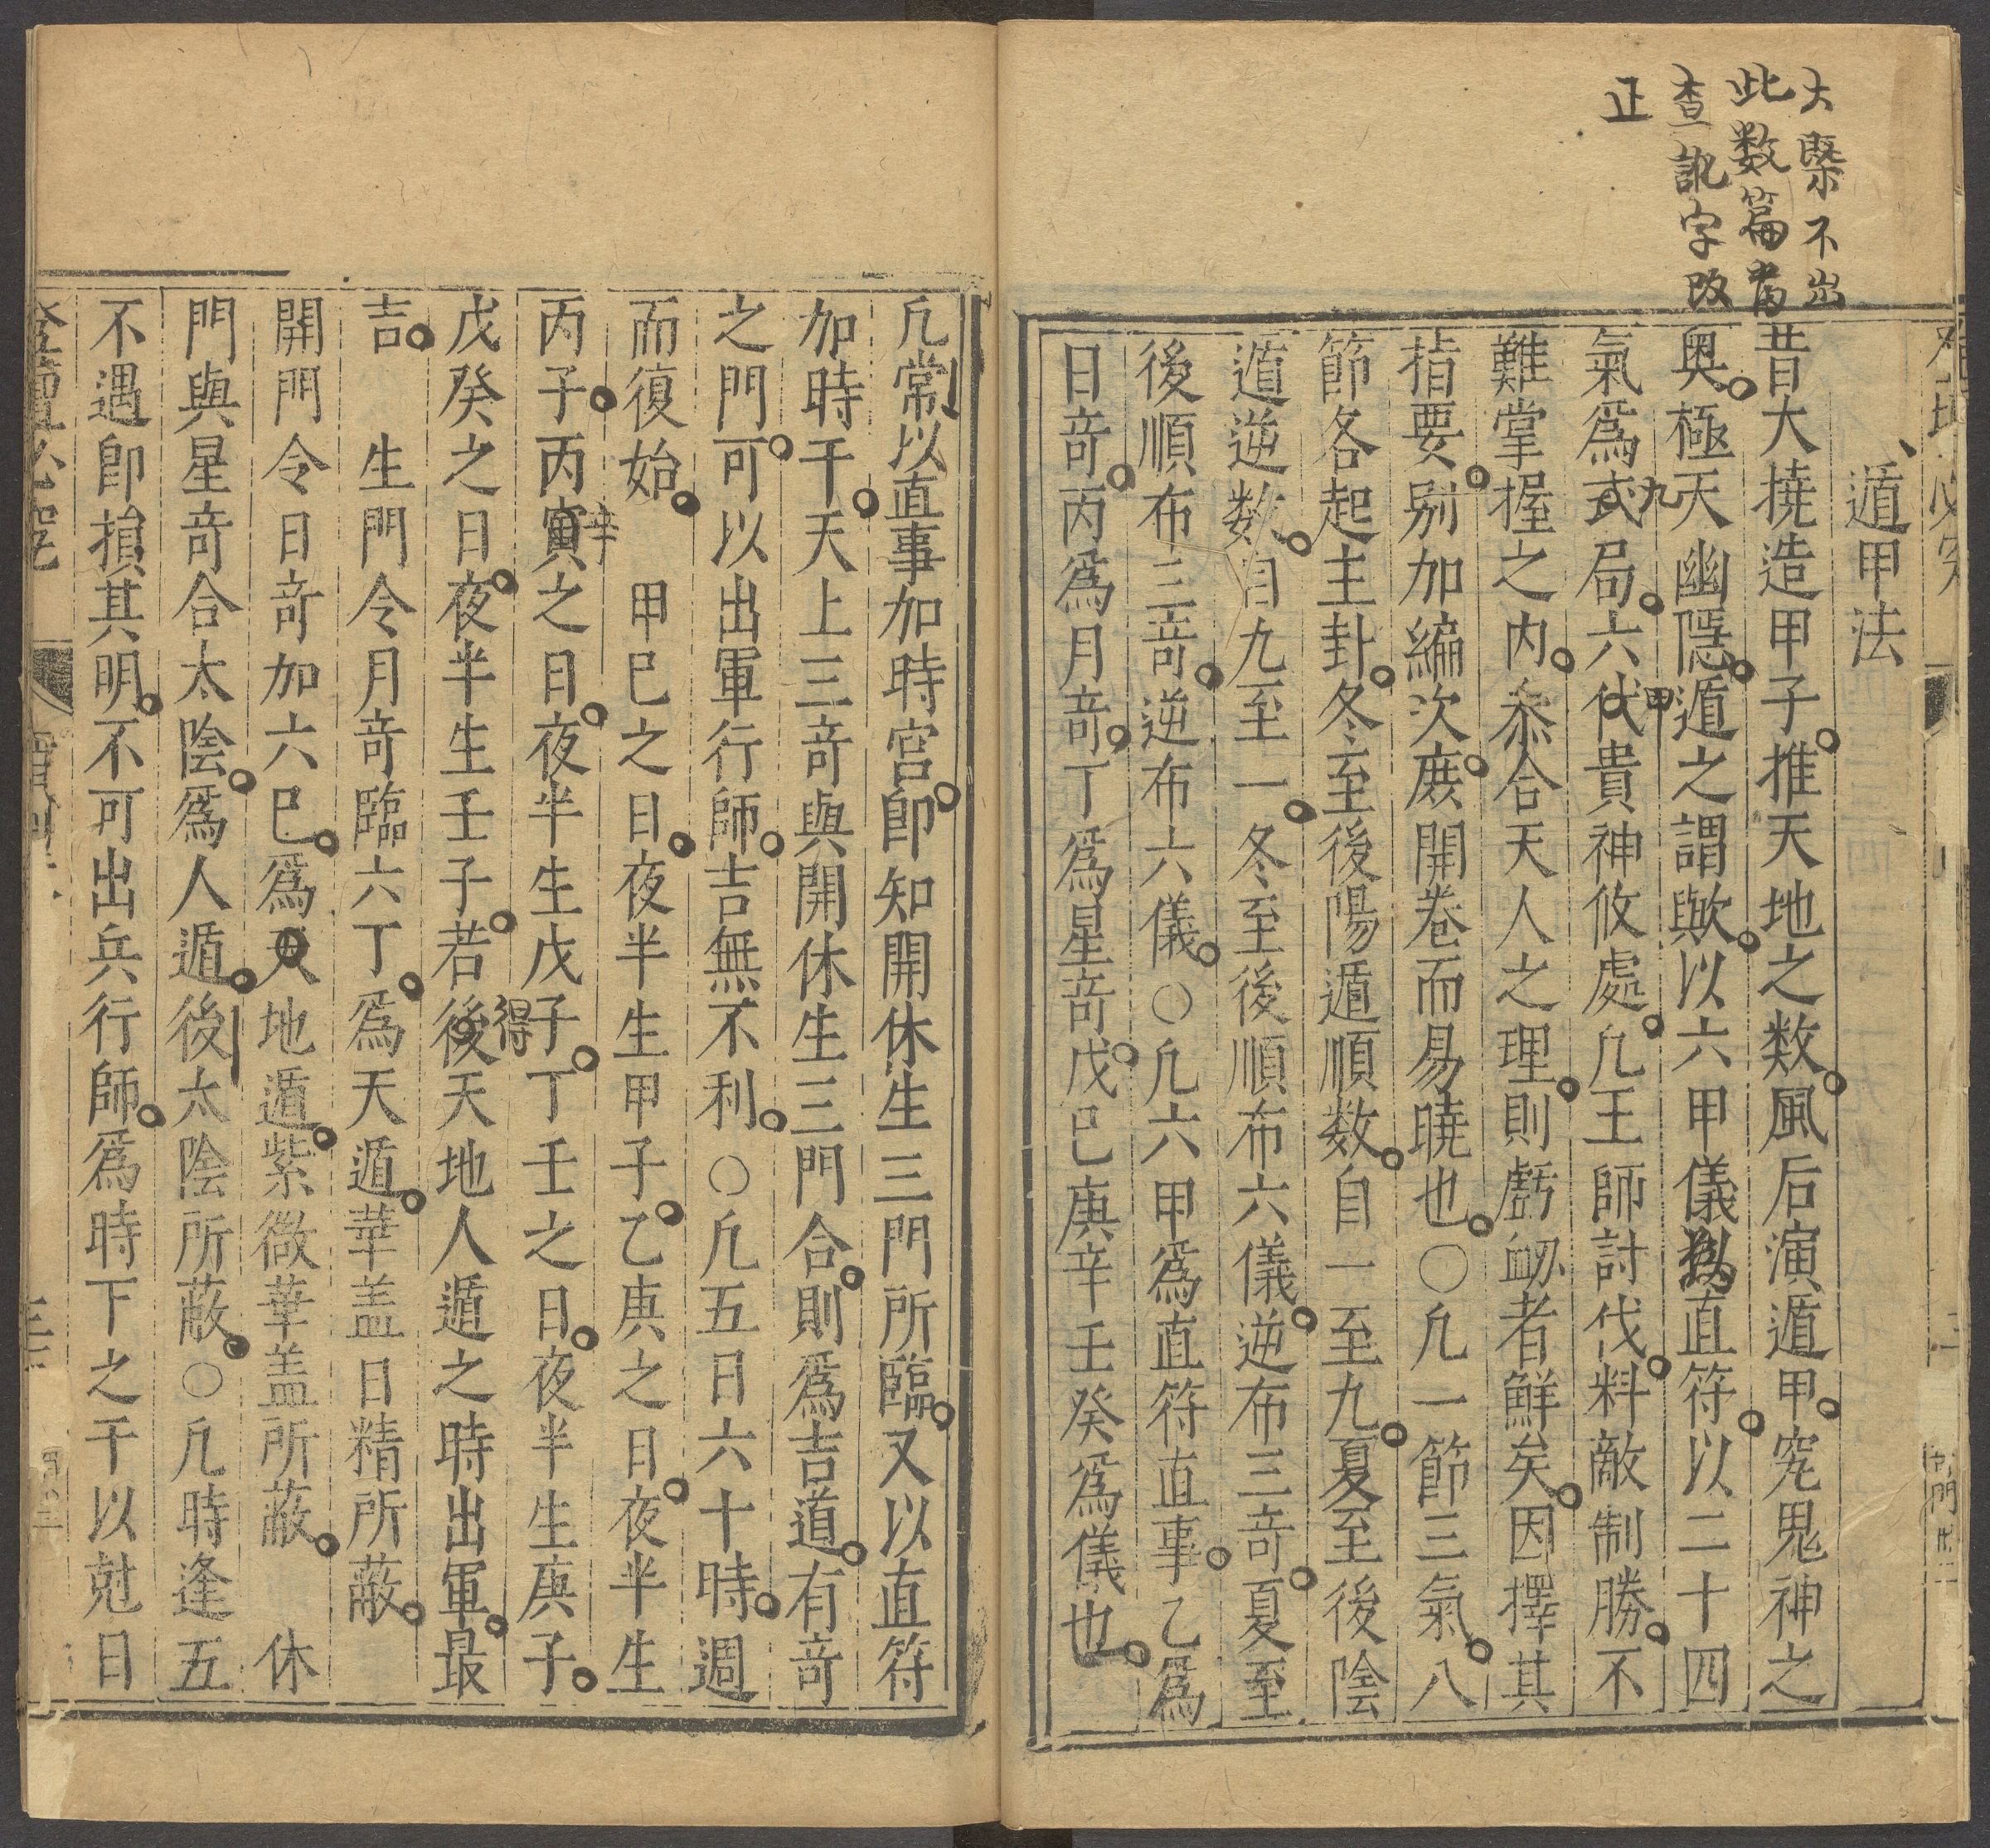 大槩不出
此数篇者
查訛字改
正
遁甲法
昔大撓造甲子推天地之数風后演遁甲究鬼神之
奥極天幽隱遁之謂歟以六甲儀為直符以二十四
氣爲式局六伏貴神攸處凢王師討伐料敵制勝不
九
甲
難掌握之内叅合天人之理則虧衂者鮮矣因擇其
指要别加編次庻開卷而易曉也○凢一節三氣八
節各起主卦冬至後陽遁順数自一至九夏至後陰
遁逆数自九至一冬至後順布六儀逆布三竒夏至
後順布三竒逆布六儀○凢六甲爲直符直事乙爲
日竒丙爲月竒丁爲星竒戊巳庚辛壬癸爲儀也
凢常以直事加時宫卽知開休生三門所臨又以直符
加時干天上三竒與開休生三門合則爲吉道有竒
之門可以出軍行師吉無不利○凢五日六十時週
而復始 甲巳之日夜半生甲子乙庚之日夜半生
丙子丙寅之日夜半生戊子丁壬之日夜半生庚子
辛
戊癸之日夜半生壬子若後天地人遁之時出軍最
得
吉 生門令月竒臨六丁爲天遁華盖日精所蔽
開門令日竒加六巳爲地遁紫微華盖所蔽 休
門與星竒合太陰爲人遁後太陰所蔽○凢時逢五
不遇卽損其明不可出兵行師爲時下之干以尅日